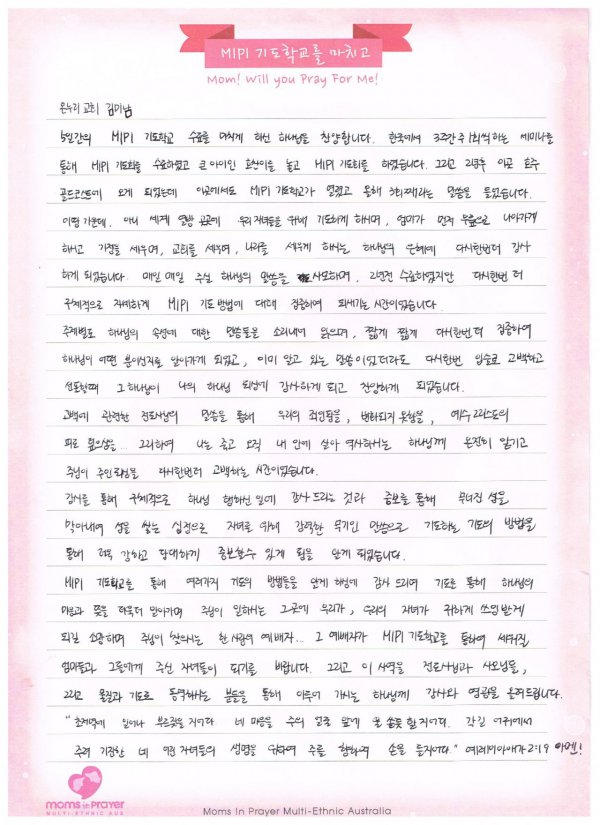 MIPI 기도학교를 마치고
Mom! Will you Pray For Me!
온누리 교회 김미남
5일간의 MIPI 기도학교 수료를 마치게 하신 하나님을 찬양합니다. 한국에서 3주간 주1회씩 하는 세미나를
통해 MIPI 기도회를 수료하였고 큰 아이인 을 놓고 MIPI 기도회를 하였습니다. 그리고 이곳 호주
골드코스트에 오게 되었는데 이곳에서도 MIPI 기도학교가 열렸고 올해 3회째라는 말씀을 들었습니다.
이땅 가운데, 아니 세계 열방 곳곳에 우리 자녀들을 위해 기도하게 하시며, 엄마가 먼저 무릎으로 나아가게
하시고 가정을 세우며, 교회를 세우며, 나라를 세우게 하시는 하나님의 은혜에 다시한번더 감사
하게 되었습니다. 매일 매일 주실 하나님의 말씀을 사모하며, 2년전 수료하였지만 다시한번 더
구체적으로 자세하게 MIPI 기도 방법에 대해 집중하여 되새기는 시간이었습니다.
주제별로 하나님의 속성에 대한 말씀들을 소리내어 읽으며, 짧게 짧게 다시한번더 집중하여
하나님이 어떤 분이신지를 알아가게 되었고, 이미 알고 있는 말씀이었더라도 다시한번 입술로 고백하고
선포할때 그 하나님이 나의 하나님 되심에 감사하게 되고 찬양하게 되었습니다.
고백에 관련한 전도사님의 말씀을 통해 우리의 죄인됨을, 변하되지 못함을, 예수그리스도의
피로 씻으심을... 그리하여 나는 죽고 오직 내 안에 살아 역사하시는 하나님께 온전히 맡기고
주님이 주인되심을 다시한번더 고백하는 시간이었습니다.
감사를 통해 구체적으로 하나님 행하신 일에 감사 드리는 것과 중보를 통해 무너진 성을
막아내며 성을 쌓는 심정으로 자녀를 위해 강력한 무기인 말씀으로 기도하는 기도의 방법을
통해 더욱 강하고 담대하게 중보할수 있게 됨을 알게 되었습니다.
MIPI 기도학교를 통해 여러가지 기도의 방법들을 알게 하심에 감사 드리며 기도를 통해 하나님의
마음과 뜻을 더욱더 알아가며 주님이 일하시는 그곳에 우리가, 우리의 자녀가 귀하게 쓰임받게
되길 소망하며 주님이 찾으시는 한 사람의 예배자... 그 예배자가 MIPI 기도학교를 통하여 세워질
엄마들과 그들에게 주신 자녀들이 되기를 바랍니다. 그리고 이 사역을 전도사님과 사모님들,
그리고 물질과 기도로 동역하시는 분들을 통해 이루어 가시는 하나님께 감사와 영광을 올려드립니다.
"초저녁에 일어나 부르짖을지어다 네 마음을 주의 얼굴 앞에 물 쏟듯 할지어다. 각길 어귀에서
주려 기진한 네 어린 자녀들의 생명을 위하여 주를 향하여 손을 들지어다." 예레미야애가 2:19 아멘!
moms in prayer
MULTI-ETHNIC AUS
Moms In Prayer Multi-Ethnic Australia